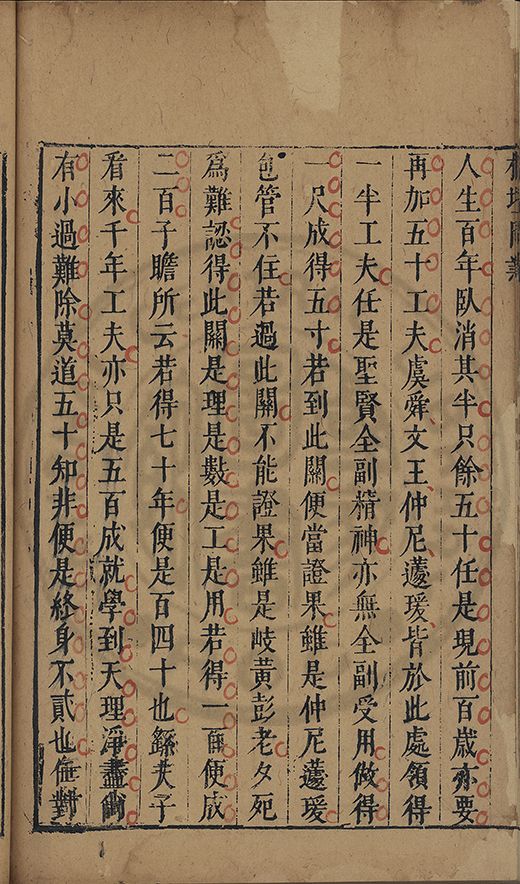 人生百年臥消其半只餘五十任是現前百歲亦要
再加五十工夫虞舜文王仲尼蘧瑗皆於此處領得
一半工夫任是聖賢全副精神亦無全副受用做得
一尺成得五寸若到此關便當證果雖是仲尼蘧瑗
包管不住若過此關不能證果雖是岐黃彭老夕死
為難認得此關是理是數是工是用若得一百便成
二百子瞻所云若得七十年便是百四十也繇夫子
看來千年工夫亦只是五百成就學到天理淨盡尚
有小過難除莫道五十知非便是終身不貳也僅對